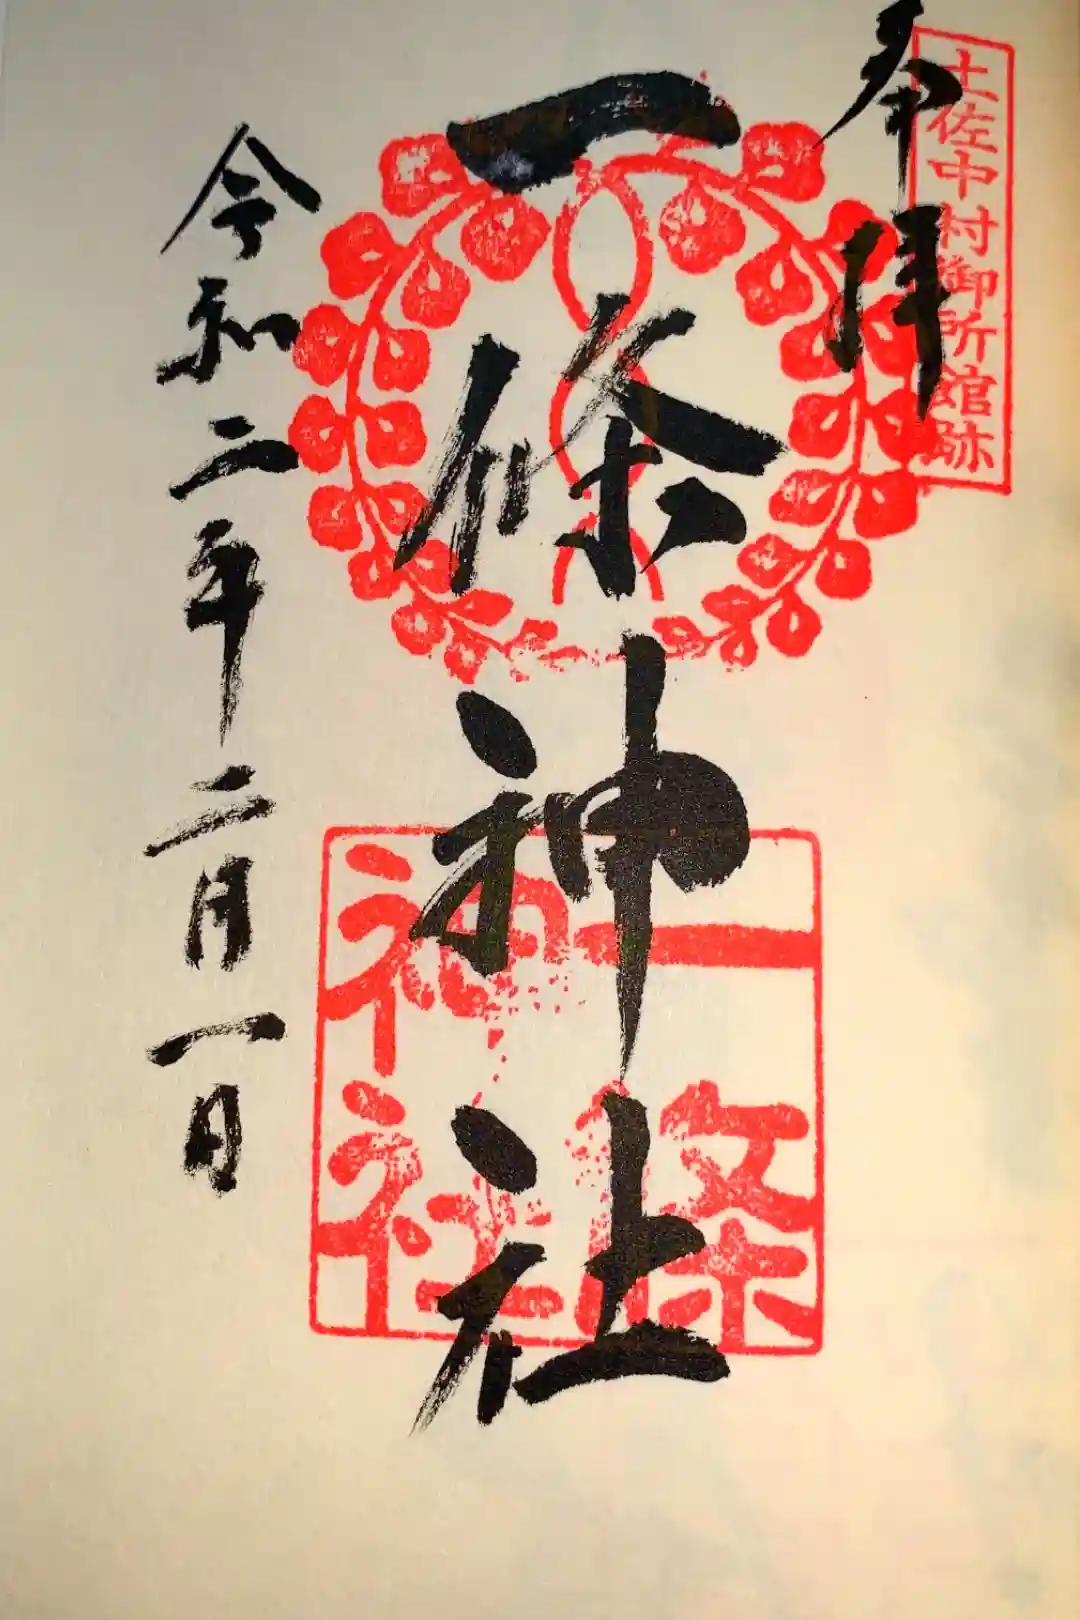 土佐中村御所館跡
奉拝
一條神社
一條
神社
令和二年二月一日